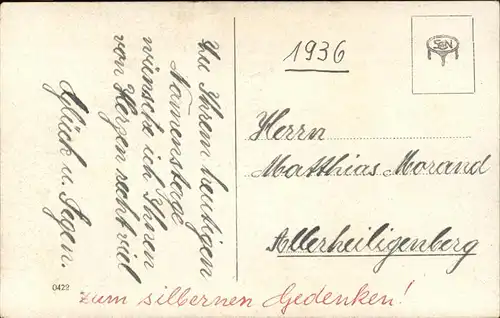 Zu Ihrem heutigen
Namenstage
wünsche ich Ihnen
von Herzen recht viel
Glück u. Segen.
1936
SGN
Herrn
Matthias Morand
Allerheiligenberg
0422
zum silbernen Gedenken!